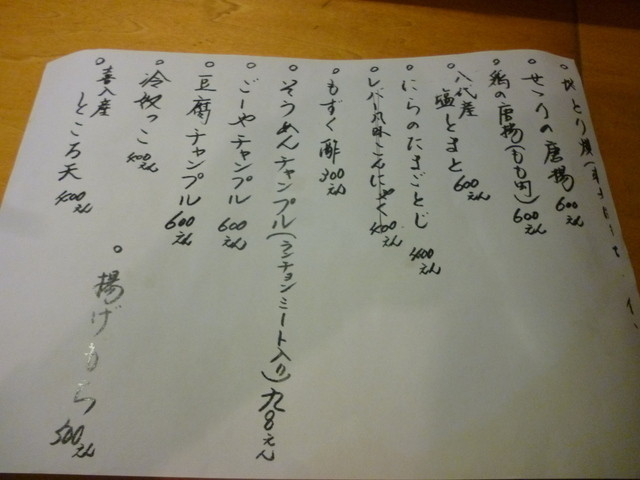 せせりの唐揚 600えん
鶏の唐揚(もも肉) 600えん
八代産 塩とまと 600えん
にらのたまごとじ 400えん
レバー風味こんにゃく 400えん
もずく酢 300えん
そうめんチャンプル(ランチョンミート入り)
ごーやチャンプル 600えん
豆腐チャンプル 600えん
冷奴っこ 400えん
喜入産 ところ天 400えん
揚げもち 500えん